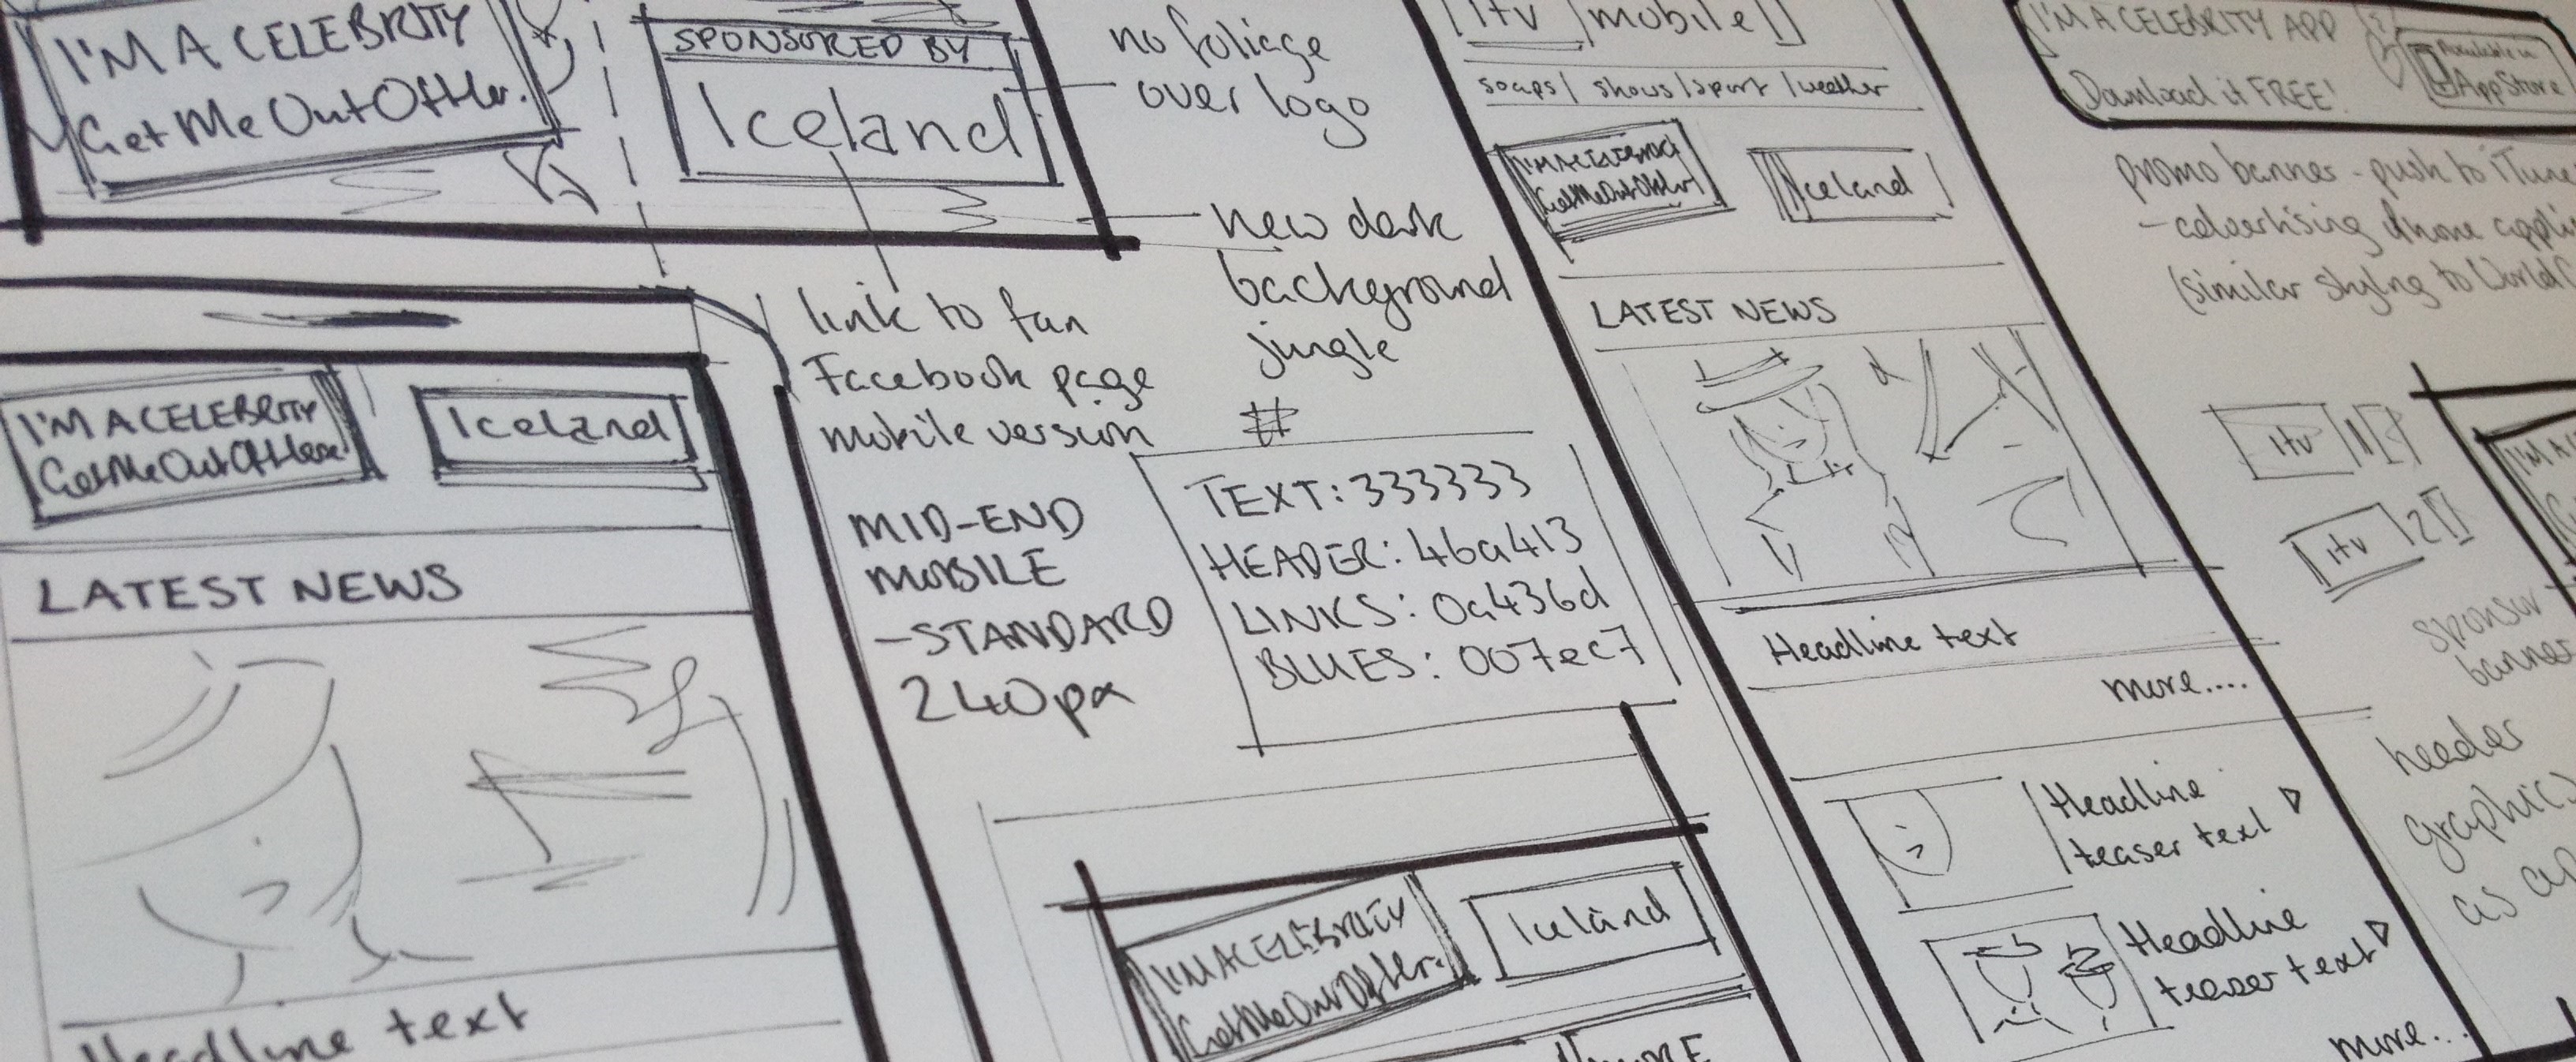 I'M A CELEBRITY
GetMeOutOfHer.
SPONSORED BY
Iceland
no foliage
over logo
new dark
background
jungle
#
link to fan
Facebook page
mobile version
I'M A CELEBRITY
GetMeOutOfHere.
Iceland
LATEST NEWS
Headline text
MID-END
MOBILE
-STANDARD
240px
TEXT: 333333
HEADER: 46a413
LINKS: 0a436d
BLUES: 007ec7
I'M A CELEBRITY
GetMeOutOfHer.
Iceland
itv mobile
soaps / shows / sport / weather
Iceland
LATEST NEWS
Headline text
more....
Headline
teaser text
Headline
teaser text
more...
I'M A CELEBRITY APP
Download it FREE!
Available in
AppStore
promo banner - push to iTune
- advertising iPhone appli
(similar styling to World
itv 1
itv 2
I'M A
sponsor
banner
header
graphics
as